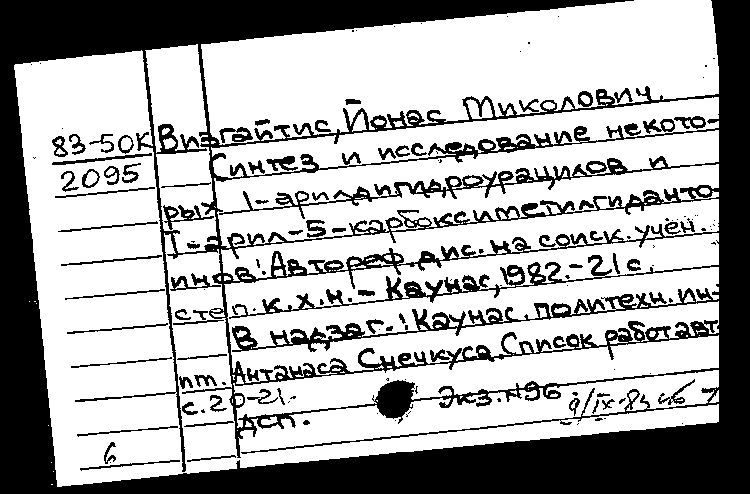 83-50К Визгайтис, Йонас Миколович.
2095 Синтез и исследование некото-
рых 1-арилдигидроурацилов и
1-арил-5-карбоксиметилгиданто-
инов: Автореф. дис. на соиск. учен.
степ. к.х.н. - Каунас, 1982. - 21 с.
В надзаг.: Каунас. политехн. ин-
т им. Антанаса Снечкуса. Список работ авт.
с. 20-21.
дсп. Экз. №96
6